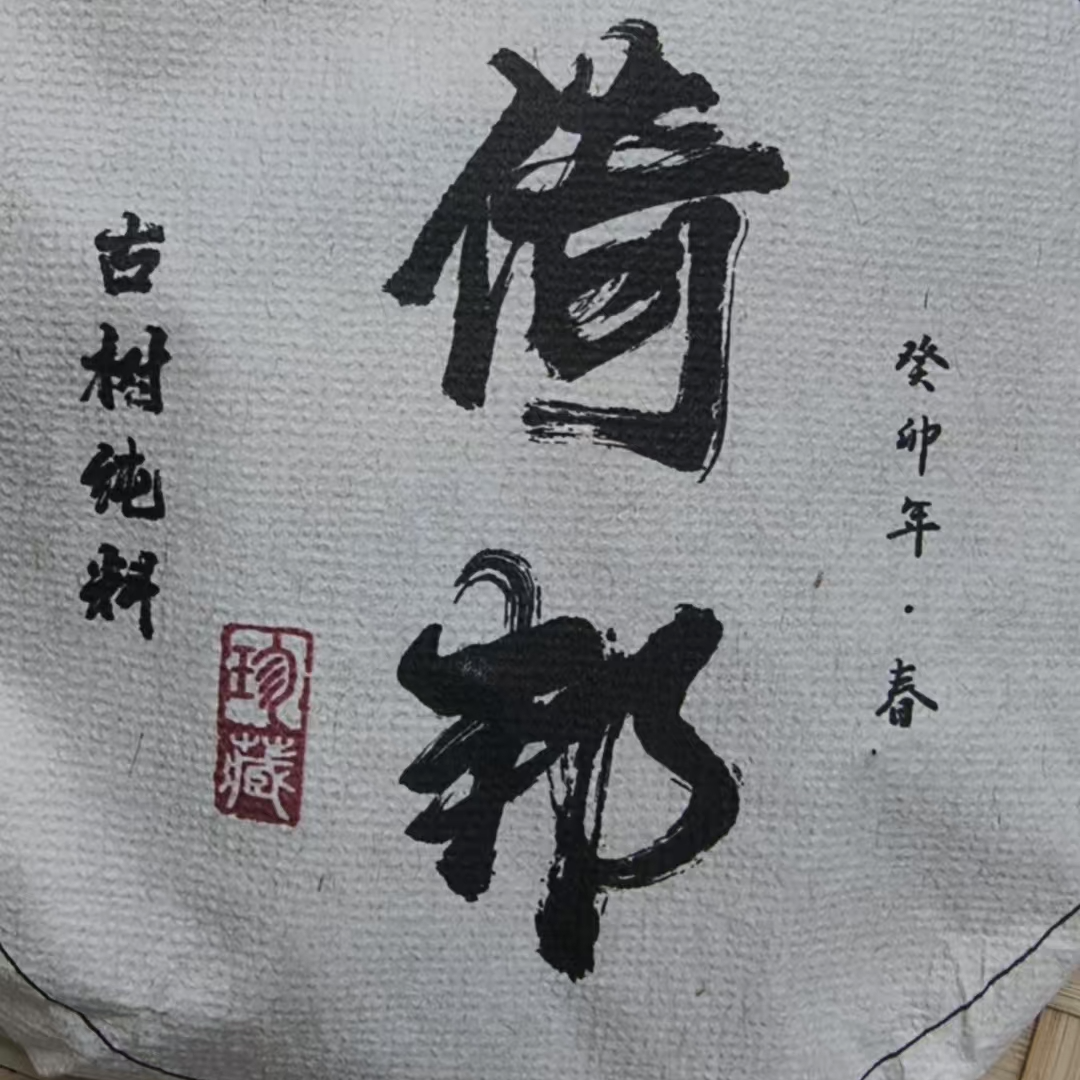 癸卯年·春
倚邦
古树纯料
珍藏